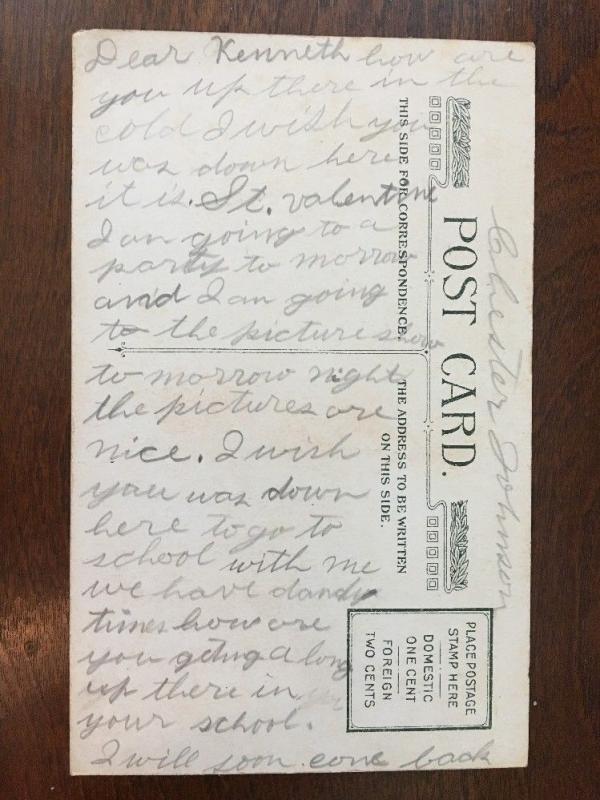 Dear Kenneth how are
you up there in the
cold I wish you
was down here
it is. St. valentine
I an going to a
party to morrow
and I an going
to the picture show
to morrow night
the pictures are
nice. I wish
you was down
here to go to
school with me
we have dandy
times how are
you geting a long
up there in
your school.
I will soon come back
Chester Johnson
POST CARD.
THIS SIDE FOR CORRESPONDENCE.
THE ADDRESS TO BE WRITTEN
ON THIS SIDE.
PLACE POSTAGE
STAMP HERE
DOMESTIC
ONE CENT
FOREIGN
TWO CENTS